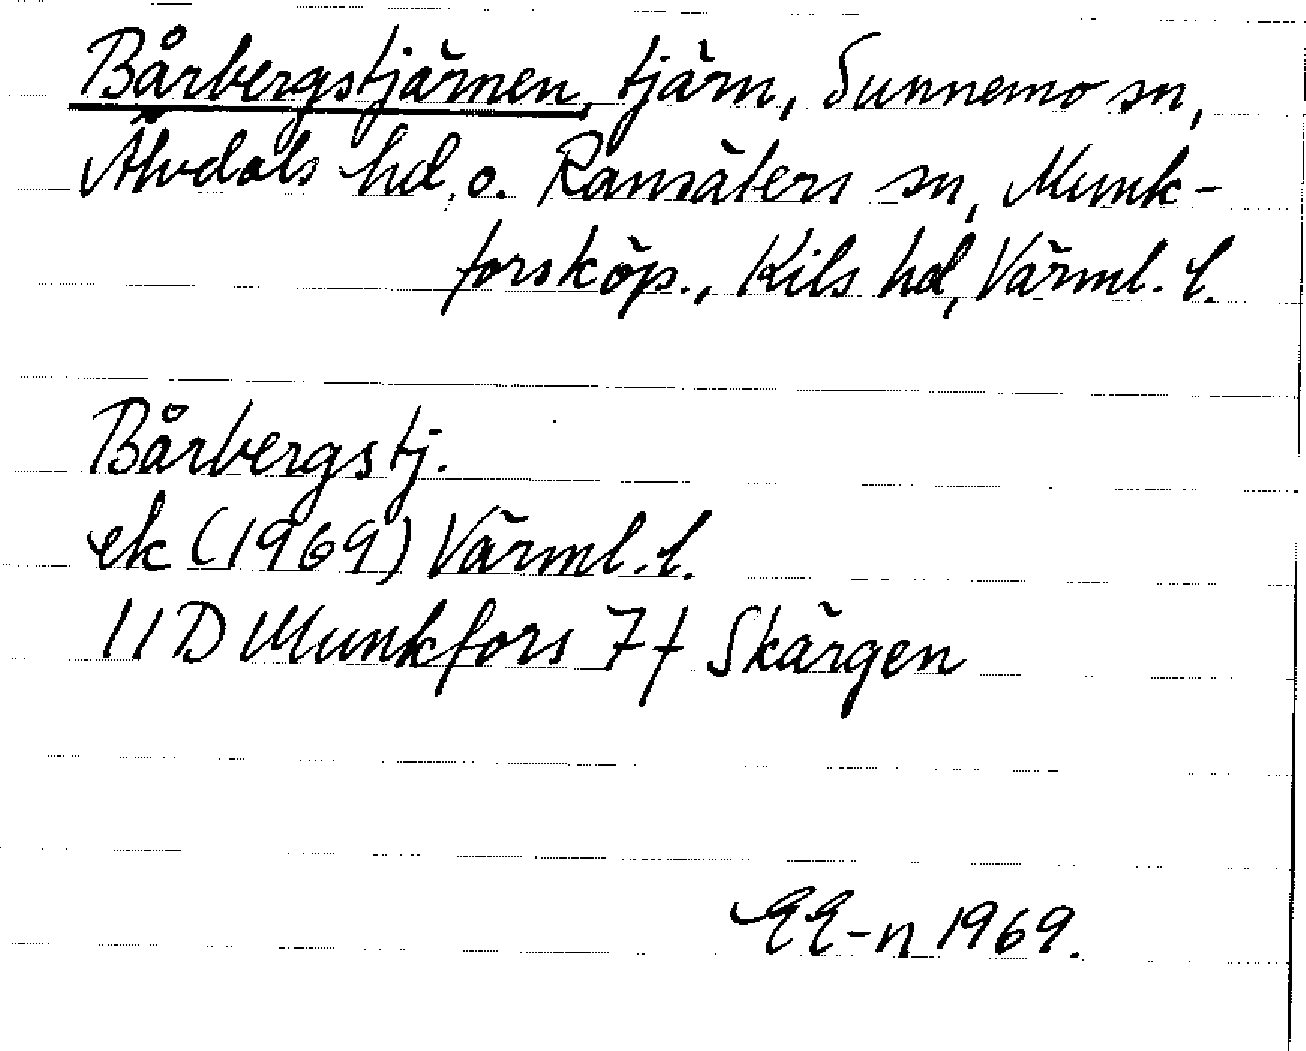 Bårbergstjärnen, tjärn, Sunnemo sn,
Älvdals hd, o. Ransäters sn, Munk-
forsköp., Kils hd, Värml. l.
Bårbergstj.
ek (1969) Värml. l.
11D Munkfors 7f Skärgen
EE-n 1969.